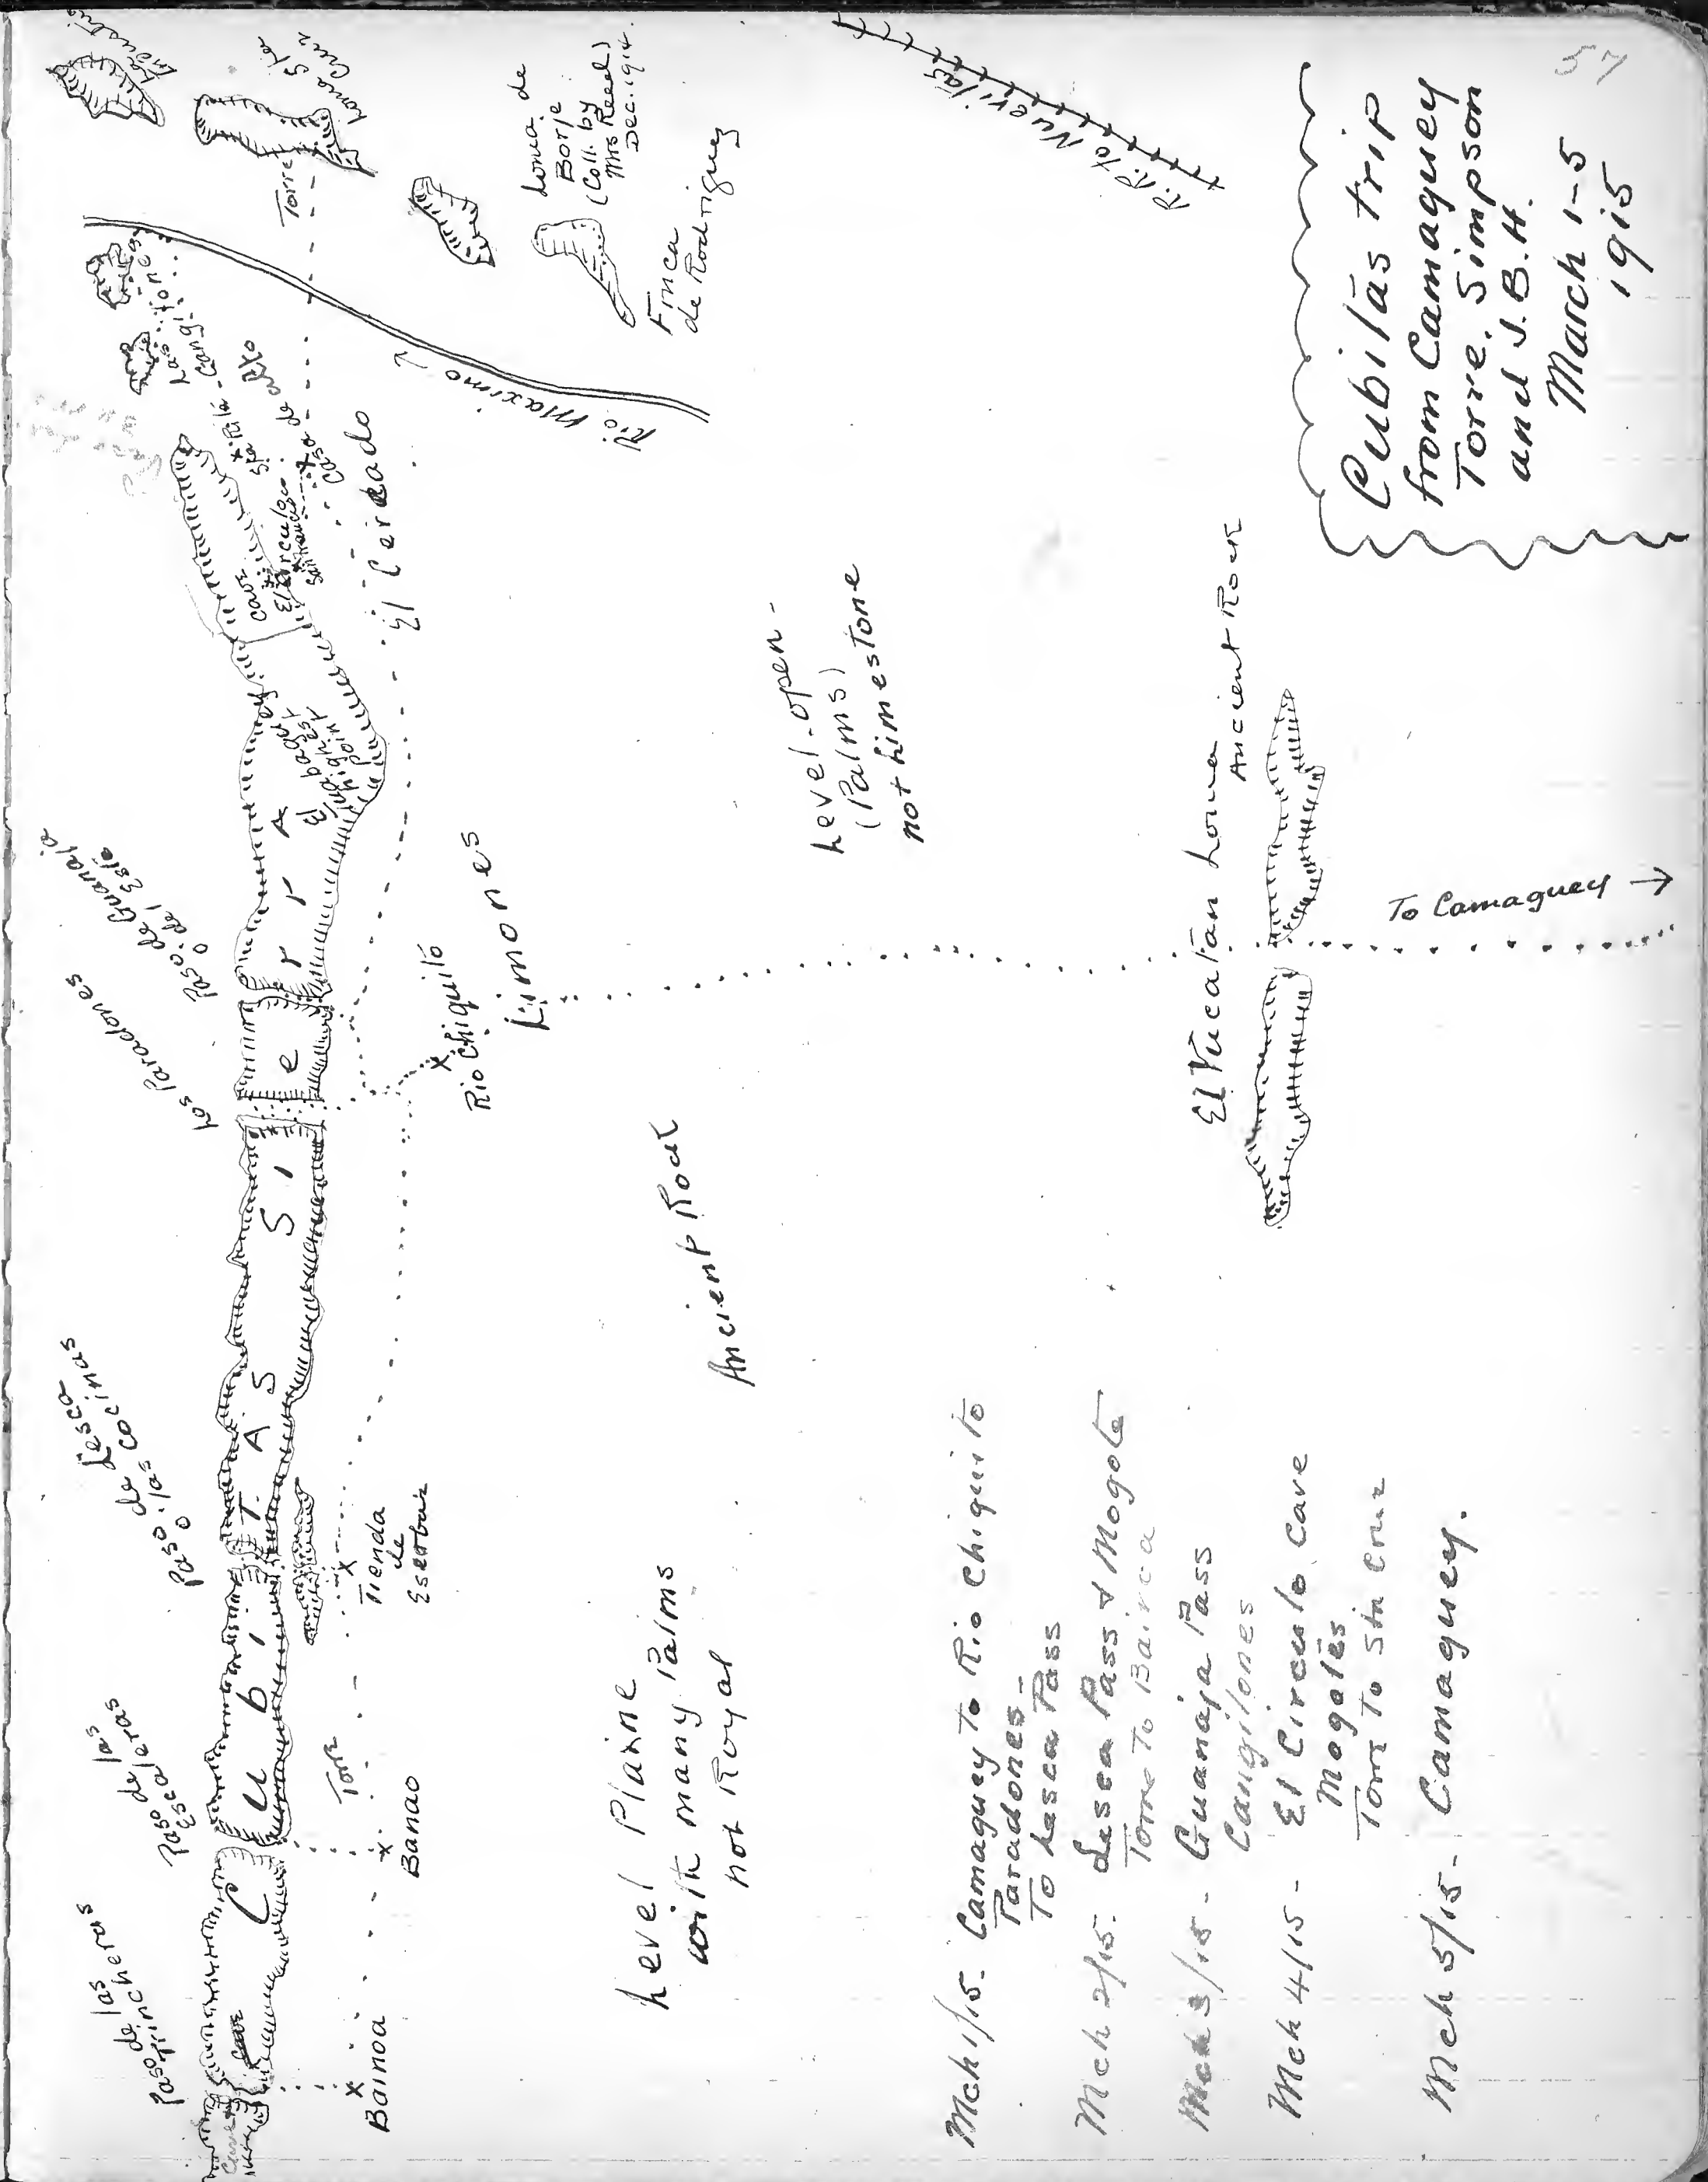 57
Cubitas trip
from Camaguey
Torre, Simpson
and J.B.H.
March 1-5
1915
Paso de las
Trincheras
Paso de las
Escaleras
Paso de Lesca
o. las cocinas
Los Paradones
Paso de Guanaja
o. del Este
Cave
Cave
CUbiTAS SierrA
El
highest
point
cave
El Circulo
Paso de
Las Cangilones
Torre
Sta
Cruz
Loma de
Borje
(Coll. by
Mrs Reed)
Dec. 1914.
Finca
de Rodriguez
Rio Maximo
R.R. to Nuevitas
El Cercado
Bainoa
Banao
Torre
Tienda
de
Escobar
Rio Chiquito
Limones
Level Plaine
with many Palms
not Royal
Ancient Rock
Level-open-
(Palms)
not Limestone
El Yucatan Loma
Ancient Rock
To Camaguey →
Mch 1/15- Camaguey to Rio Chiquito
Paradones-
To Lesca Pass
Mch 2/15- Lesca Pass & Mogote
Torre to Bainoa
Mch 3/15- Guanaja Pass
Cangilones
Mch 4/15- El Circulo Cave
Mogotes
Torre to Sta Cruz
Mch 5/15- Camaguey.